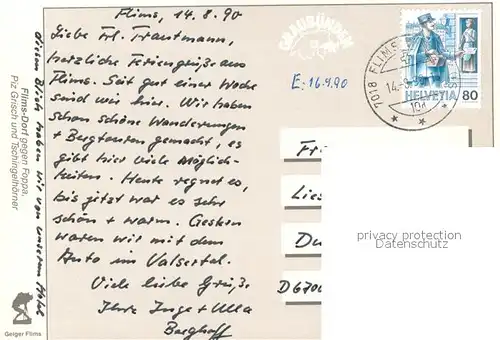 Flims, 14.8.90
Liebe Frl. Trautmann,
herzliche Feriengrüße aus
Flims. Seit gut einer Woche
sind wir hier. Wir haben
schon schöne Wanderungen
+ Bergtouren gemacht, es
gibt hier viele Möglich-
keiten. Heute regnet es,
bis jetzt war es sehr
schön + warm. Gestern
waren wir mit dem
Auto im Valsertal.
Viele liebe Grüße
Ihre Inge + Ulla
Berghoff
diesen Blick haben wir von unserem Hotel
Flims-Dorf gegen Foppa,
Piz Grisch und Tschingelhörner
Geiger Flims
GRAUBÜNDEN
E: 16.9.90
7018 FLIMS
14.-8.
HELVETIA 80
Fr
Lies
Du
D 6700
privacy protection
Datenschutz